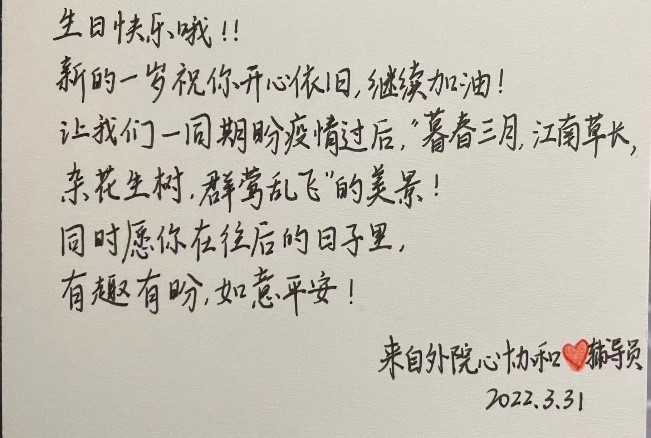 生日快乐哦!!
新的一岁祝你开心依旧,继续加油!
让我们一同期盼疫情过后,“暮春三月,江南草长,
杂花生树,群莺乱飞”的美景!
同时愿你在往后的日子里,
有趣有盼,如意平安!
来自外院心协和❤辅导员
2022.3.31